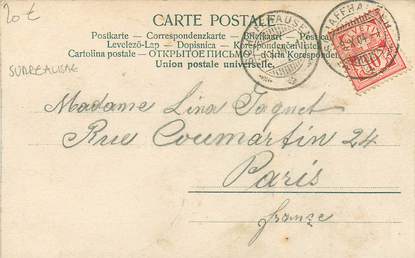 20 €
CARTE POSTALE
Postkarte — Correspondenzkarte — Briefkaart — Postkort
Levelező-Lap — Dopisnica — Korespondenční lístek
Cartolina postale — ОТКРЫТОЕ ПИСЬМО — Karta Korespond
Union postale universelle.
SURREALISME
Madame Lina Paquet
Rue Coumartin 24
Paris
france